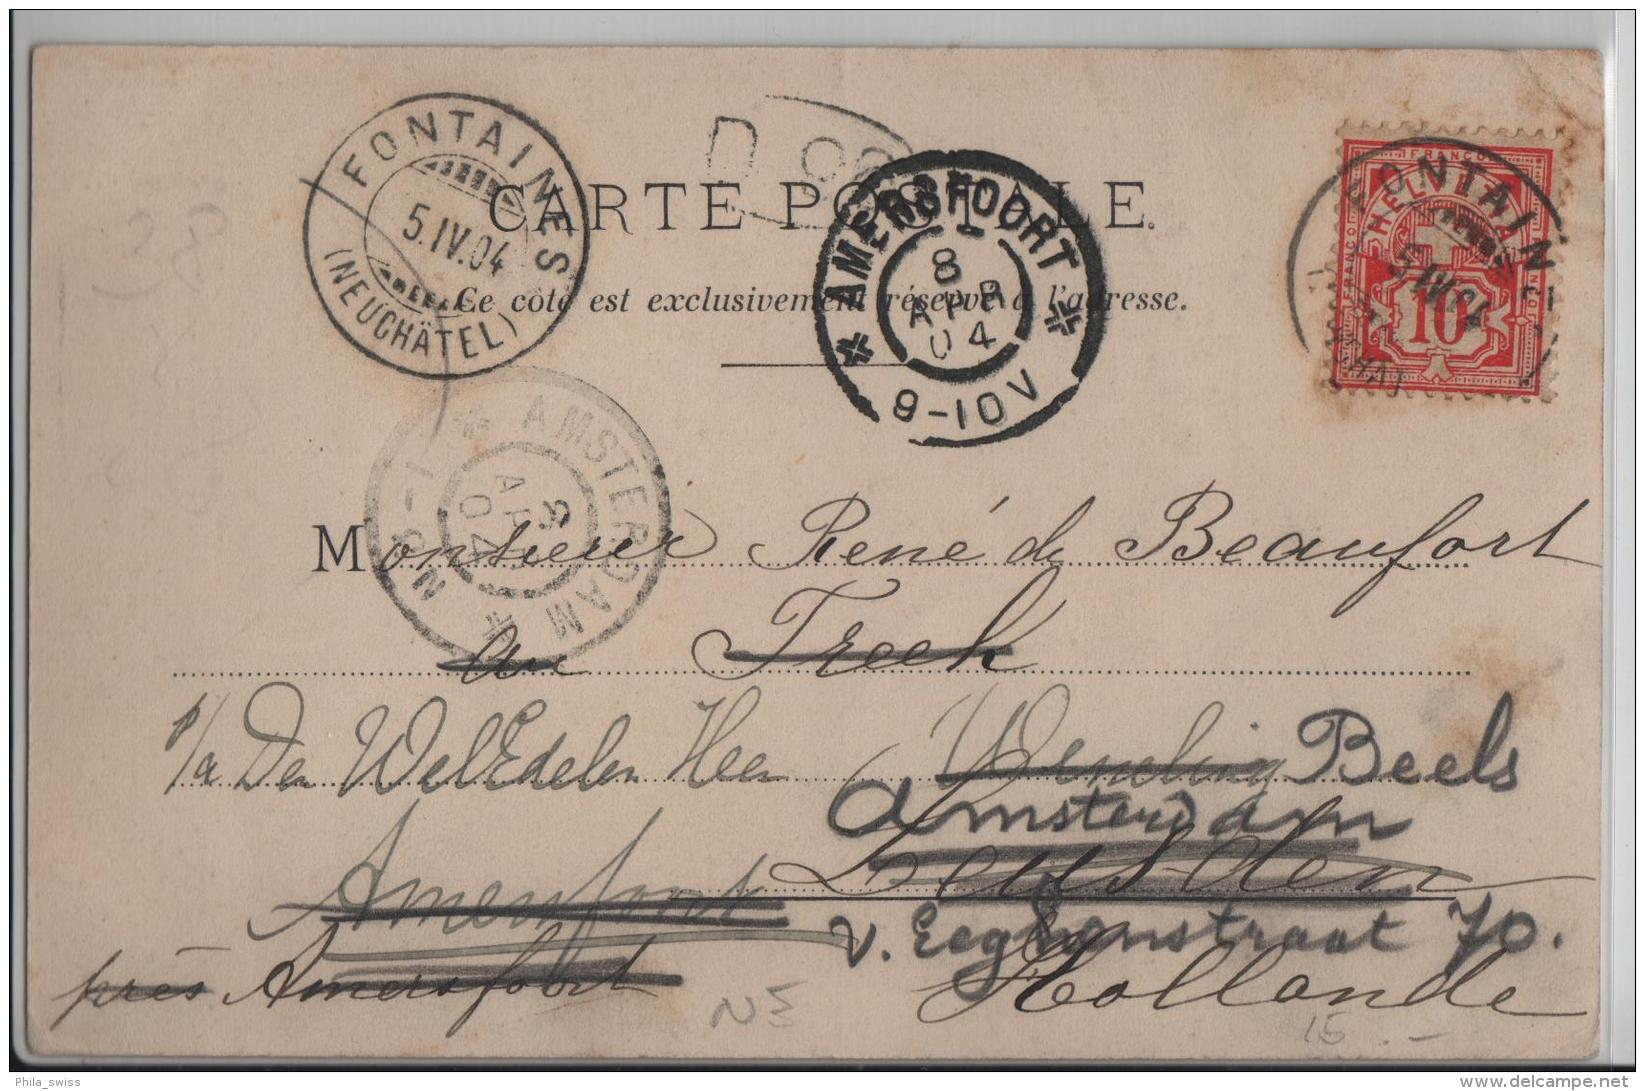 FONTAINES
5.IV.04
(NEUCHÂTEL)
CARTE POSTALE.
Ce côté est exclusivement réservé à l'adresse.
* AMERSFOORT *
8
APR
04
9-10V
FRANCO
HELVETIA
10
FONTAINES
5.IV.04
* AMSTERDAM *
8
APR
04
Monsieur René de Beaufort
au Treek
p/a Den WelEdelen Heer Wendling Beels
Amsterdam
Amersfoort Leusden
v. Eeghenstraat 70.
près Amersfoort Hollande
NE
15.-
Phila_swiss
delcampe.net